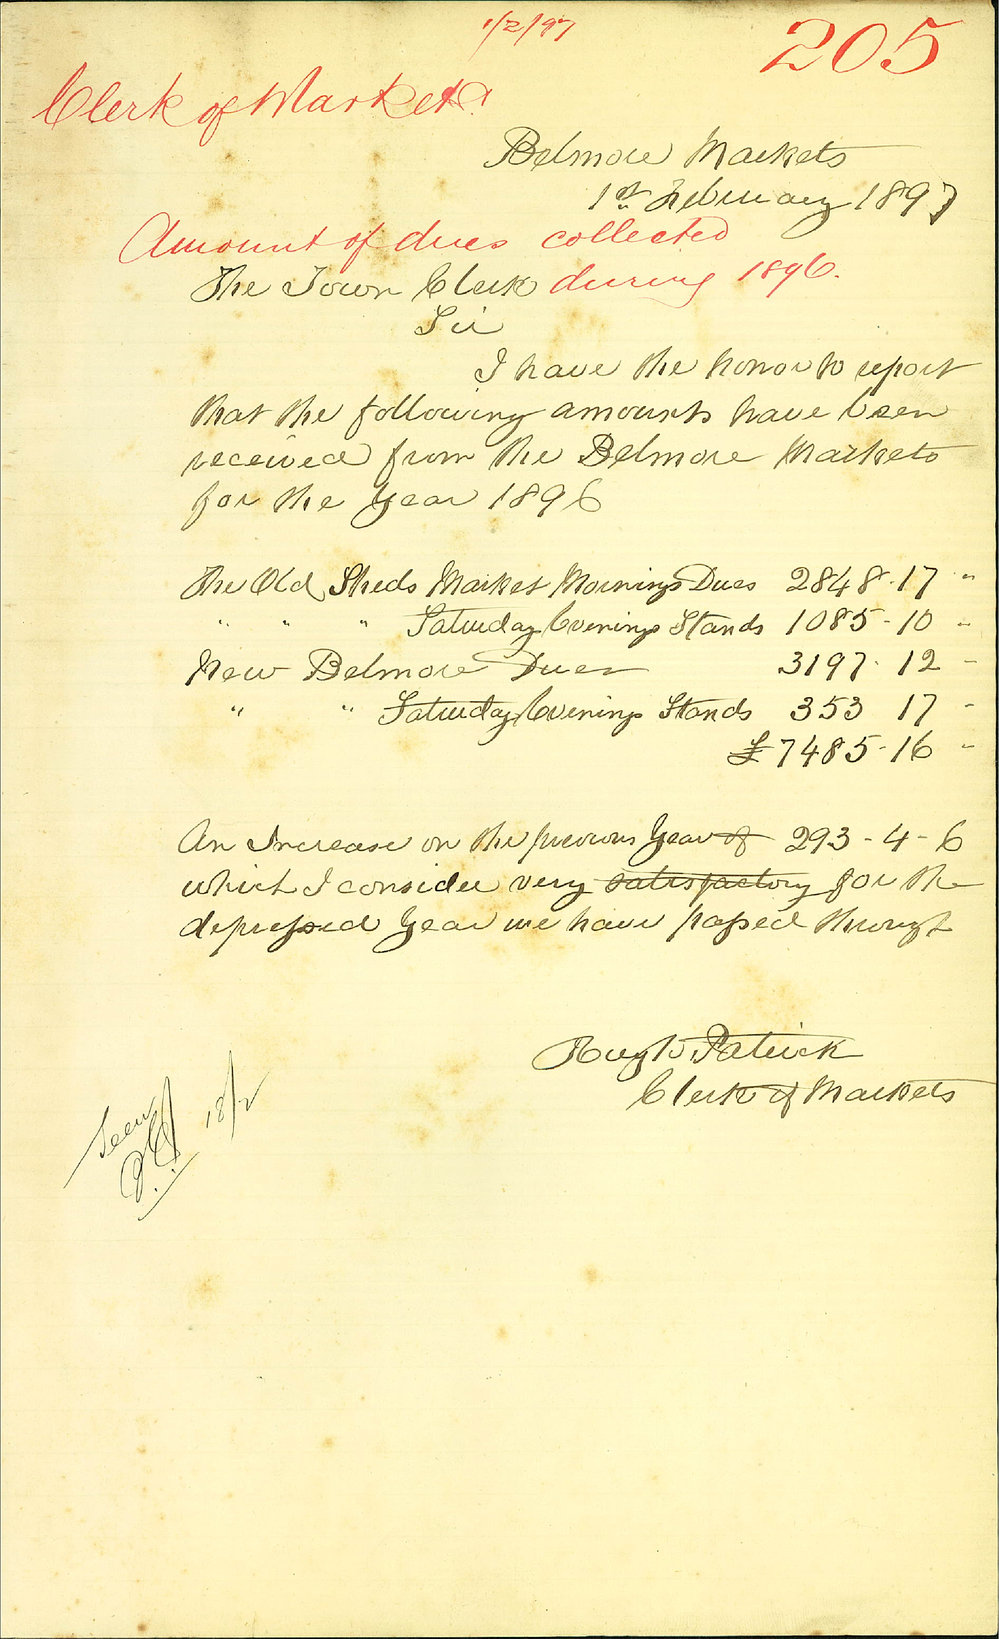 1/2/97
205
Clerk of Markets.
Belmore Markets
1st February 1897
Amount of dues collected
during 1896.
The Town Clerk
Sir
I have the honor to report
that the following amounts have been
received from the Belmore Markets
for the Year 1896
The Old Sheds Market Mornings Dues 2848-17 "
" " " Saturday Evenings Stands 1085-10 -
New Belmore Dues 3197-12 -
" " Saturday Evenings Stands 353 17 -
£7485-16 -
An Increase on the previous Year of 293-4-6
which I consider very satisfactory for the
depressed Year we have passed through
Hugh Patrick
Clerk of Markets
Seen
18/2